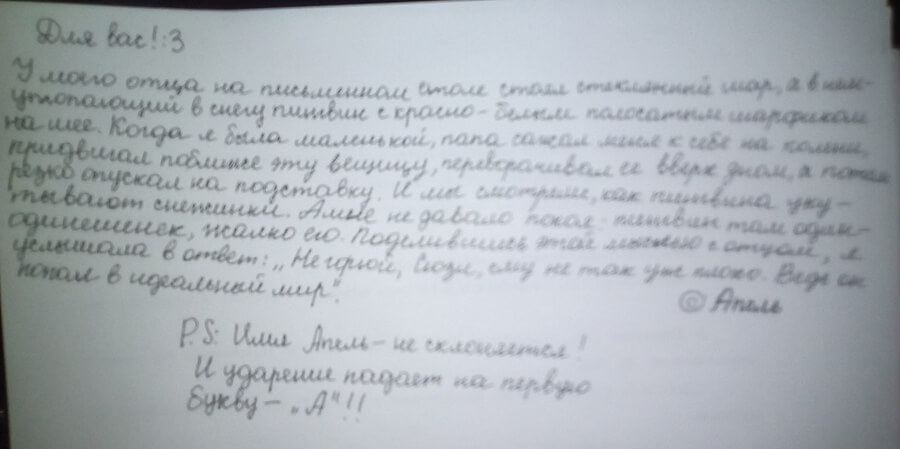 Для вас! :3
У моего отца на письменном столе стоял стеклянный шар, а в нем-
утопающий в снегу пингвин с красно-белым полосатым шарфиком
на шее. Когда я была маленькой, папа сажал меня к себе на колени,
придвигал поближе эту вещицу, переворачивал ее вверх дном, а потом
резко опускал на подставку. И мы смотрели, как пингвина уку-
тывают снежинки. А мне не давало покоя: пингвин там один-
одинешенек, жалко его. Поделившись этой мыслью с отцом, я
услышала в ответ: „Не горюй, Сюзи, ему не так уж плохо. Ведь он
попал в идеальный мир".
© Апель
P.S: Имя Апель – не склоняется!
И ударение падает на первую
букву – „А"!!